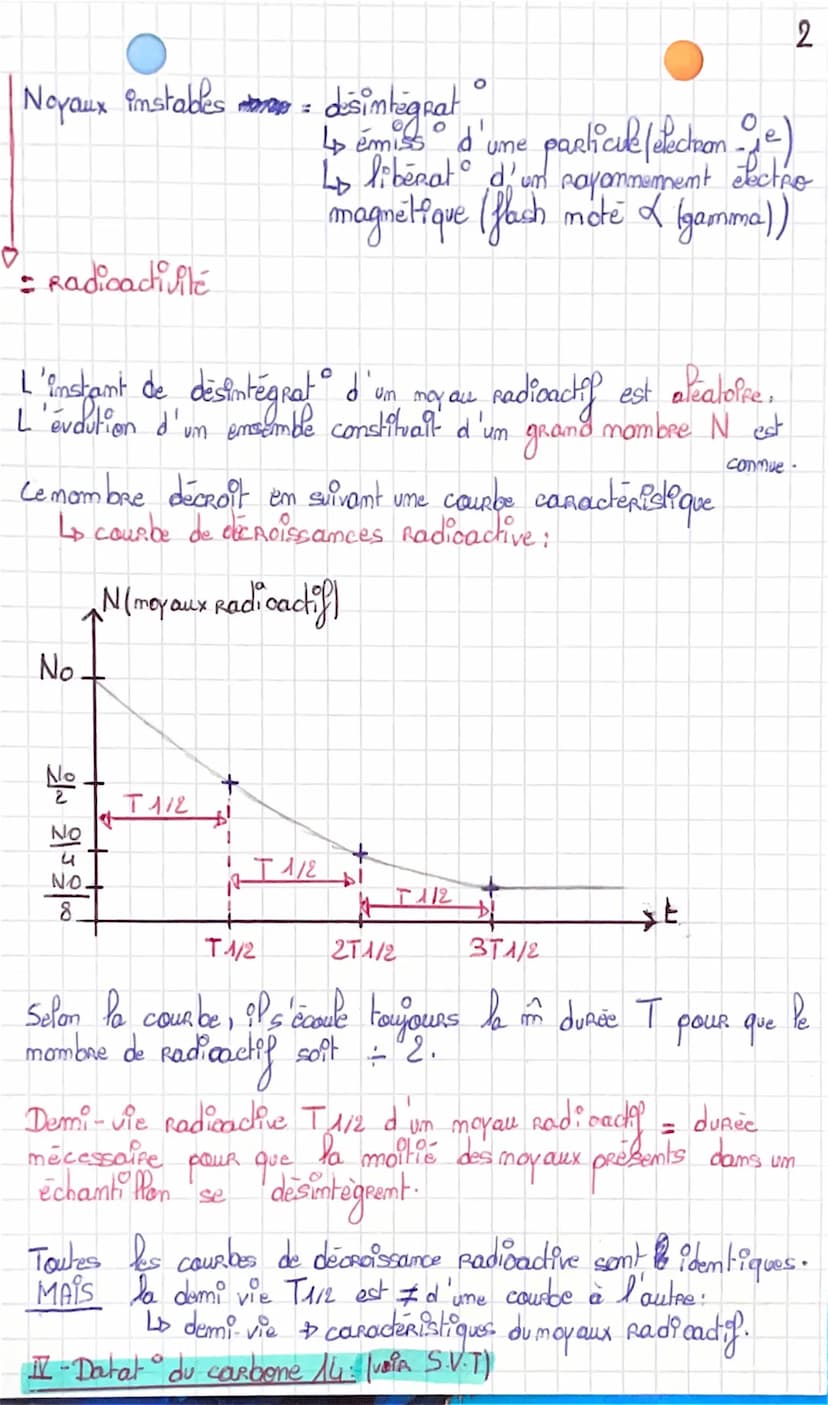 2
Noyaux instables = désintégrat°
↳ émiss° d'une particule (électron ⁰₋₁e)
↳ libérat° d'un rayonnement électro
magnétique (flash noté α (gamma))
= Radioactivité
L'instant de désintégrat° d'un noyau radioactif est aléatoire.
L'évolution d'un ensemble constituait d'un grand nombre N est
connue.
Ce nombre décroît en suivant une courbe caractéristique
↳ courbe de décroissances radioactive :
N (noyaux radioactif)
No
No/2
T 1/2
No/4
T 1/2
No/8
T 1/2
t
T 1/2 2T 1/2 3T 1/2
Selon la courbe, il s'écoule toujours la m̂ durée T pour que le
nombre de radioactif soit ÷ 2.
Demi-vie radioactive T 1/2 d'un noyau radioactif = durée
nécessaire pour que la moitié des noyaux présents dans un
échantillon se désintègrent.
Toutes les courbes de décroissance radioactive sont identiques.
MAIS la demi vie T1/2 est ≠ d'une courbe à l'autre :
↳ demi-vie → caractéristiques du noyaux radioactif.
IV - Datat° du carbone 14 : (voir S.V.T)